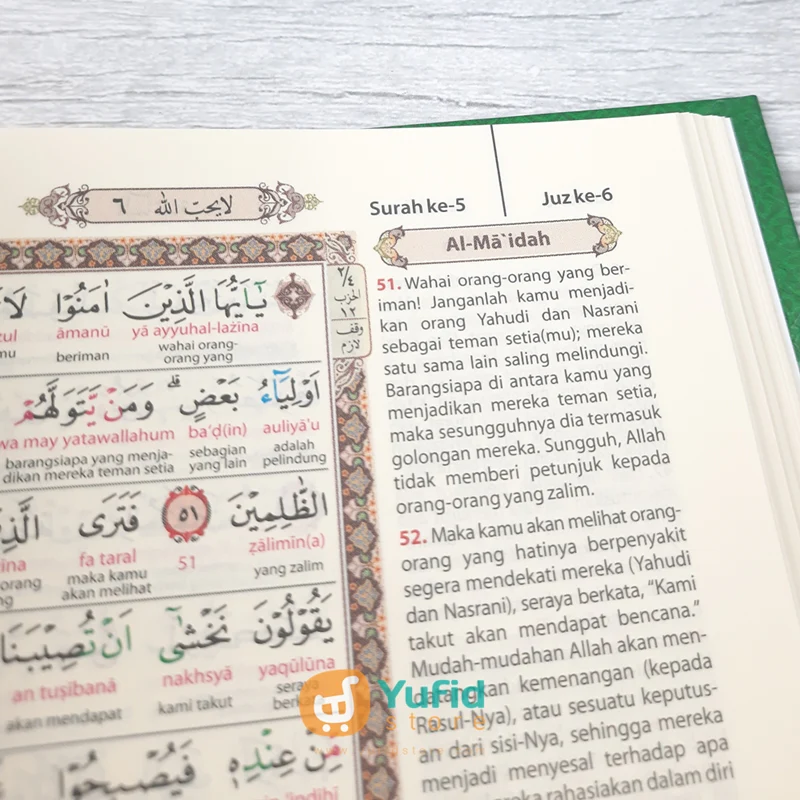 لايحبّ الله ٦
Surah ke-5
Juz ke-6
Al-Mā`idah
٢/٤
الحزب
١٢
وقف
لازم
يٰٓاَيُّهَا الَّذِيْنَ اٰمَنُوْا لَا
yā ayyuhal-lażīna āmanū
wahai orang- beriman
orang yang
اَوْلِيَاۤءُ بَعْضٍۗ وَمَنْ يَّتَوَلَّهُمْ
auliyā'u ba'ḍ(in) wa may yatawallahum
adalah sebagian barangsiapa yang menja-
pelindung yang lain dikan mereka teman setia
الظّٰلِمِيْنَ ٥١ فَتَرَى
ẓālimīn(a) 51 fa taral
yang zalim maka kamu orang
akan melihat
يَقُوْلُوْنَ نَخْشٰٓى اَنْ تُصِيْبَنَا
yaqūlūna nakhsyā an tuṣībanā
kami takut akan mendapat
مِّنْ عِنْدِهٖ فَيُصْبِحُوْا
51. Wahai orang-orang yang ber-
iman! Janganlah kamu menjadi-
kan orang Yahudi dan Nasrani
sebagai teman setia(mu); mereka
satu sama lain saling melindungi.
Barangsiapa di antara kamu yang
menjadikan mereka teman setia,
maka sesungguhnya dia termasuk
golongan mereka. Sungguh, Allah
tidak memberi petunjuk kepada
orang-orang yang zalim.
52. Maka kamu akan melihat orang-
orang yang hatinya berpenyakit
segera mendekati mereka (Yahudi
dan Nasrani), seraya berkata, “Kami
takut akan mendapat bencana.”
Mudah-mudahan Allah akan men-
datangkan kemenangan (kepada
Rasul-Nya), atau sesuatu keputus-
an dari sisi-Nya, sehingga mereka
menjadi menyesal terhadap apa
rahasiakan dalam diri
Yufid
store